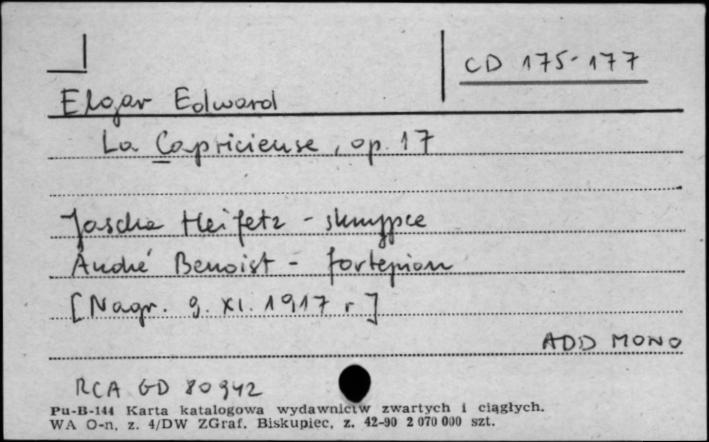 CD 175-177
Elgar Edward
La Capricieuse, op. 17
Jascha Heifetz - skrzypce
André Benoist - fortepian
[Nagr. 9. XI. 1917 r]
ADD MONO
RCA GD 80942
Pu-B-144 Karta katalogowa wydawnictw zwartych i ciągłych.
WA O-n, z. 4/DW ZGraf. Biskupiec, z. 42-90 2 070 000 szt.